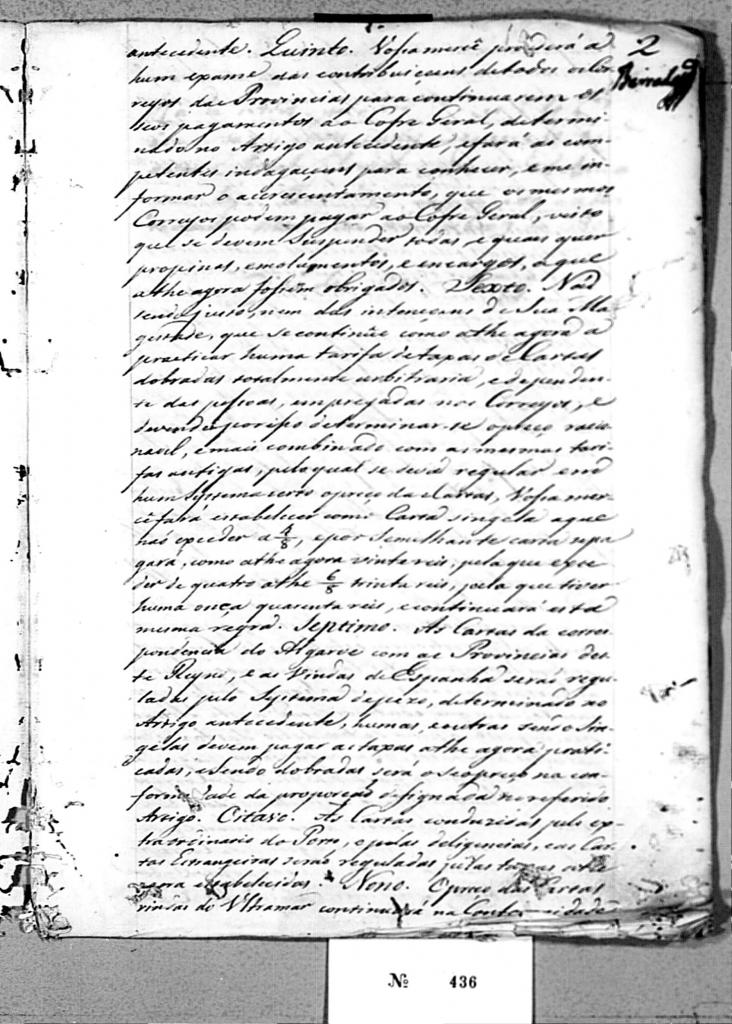 2
antecedente. Quinto. Vossamercê procederá a
hum exame das contribuiçoens de todos os Cor-
reyos das Provincias para continuarem os
seos pagamentos ao Cofre Geral, determi-
nado no Artigo antecedente, e fará as com-
petentes indagaçoens para conhecer, e me in-
formar o acrescentamento, que os mesmos
Correyos podem pagar ao Cofre Geral, visto
que se devem suspender todas, e quaes quer
propinas, emolumentos, e encargos, a que
athe agora fossem obrigados. Sexto. Não
sendo justo, nem das intençoens de Sua Ma-
gestade, que se continûe como athe agora a
practicar huma tarifa de taxas de Cartas
dobradas totalmente arbitraria, e dependen-
te das pessoas, empregadas nos Correyos, e
devendo por isso determinar-se o preço racio-
navel, e mais combinado com as mesmas tari-
fas antigas, pelo qual se deva regular em
hum Systema certo o preço das Cartas, Vossa mer-
cê fará estabelecer como Carta singela a que
naõ exceder a 4/8, e por semelhante carta se pa-
gará, como athe agora vinte reis, pela que exce-
der de quatro athe 6/8 trinta reis, pela que tiver
huma onça quarenta reis, e continuará esta
mesma regra. Septimo. As Cartas da corres-
pondencia do Algarve com as Provincias des-
te Reyno, e as vindas de Espanha seraõ regu-
ladas pelo Systema de pezo, determinado no
Artigo antecedente, humas, e outras sendo Sin-
gelas devem pagar as taxas athe agora prati-
cadas, e sendo dobradas será o seo preço na con-
formidade da proporçaõ designada no referido
Artigo. Oitavo. As Cartas conduzidas pelo ex-
traordinario do Porto, e pelas deligencias, e as Car-
tas Estrangeiras seraõ reguladas pelas taxas athe
agora estabelecidas. Nono. O preço das Cartas
vindas do Ultramar continuará na Conformidade
Nº 436